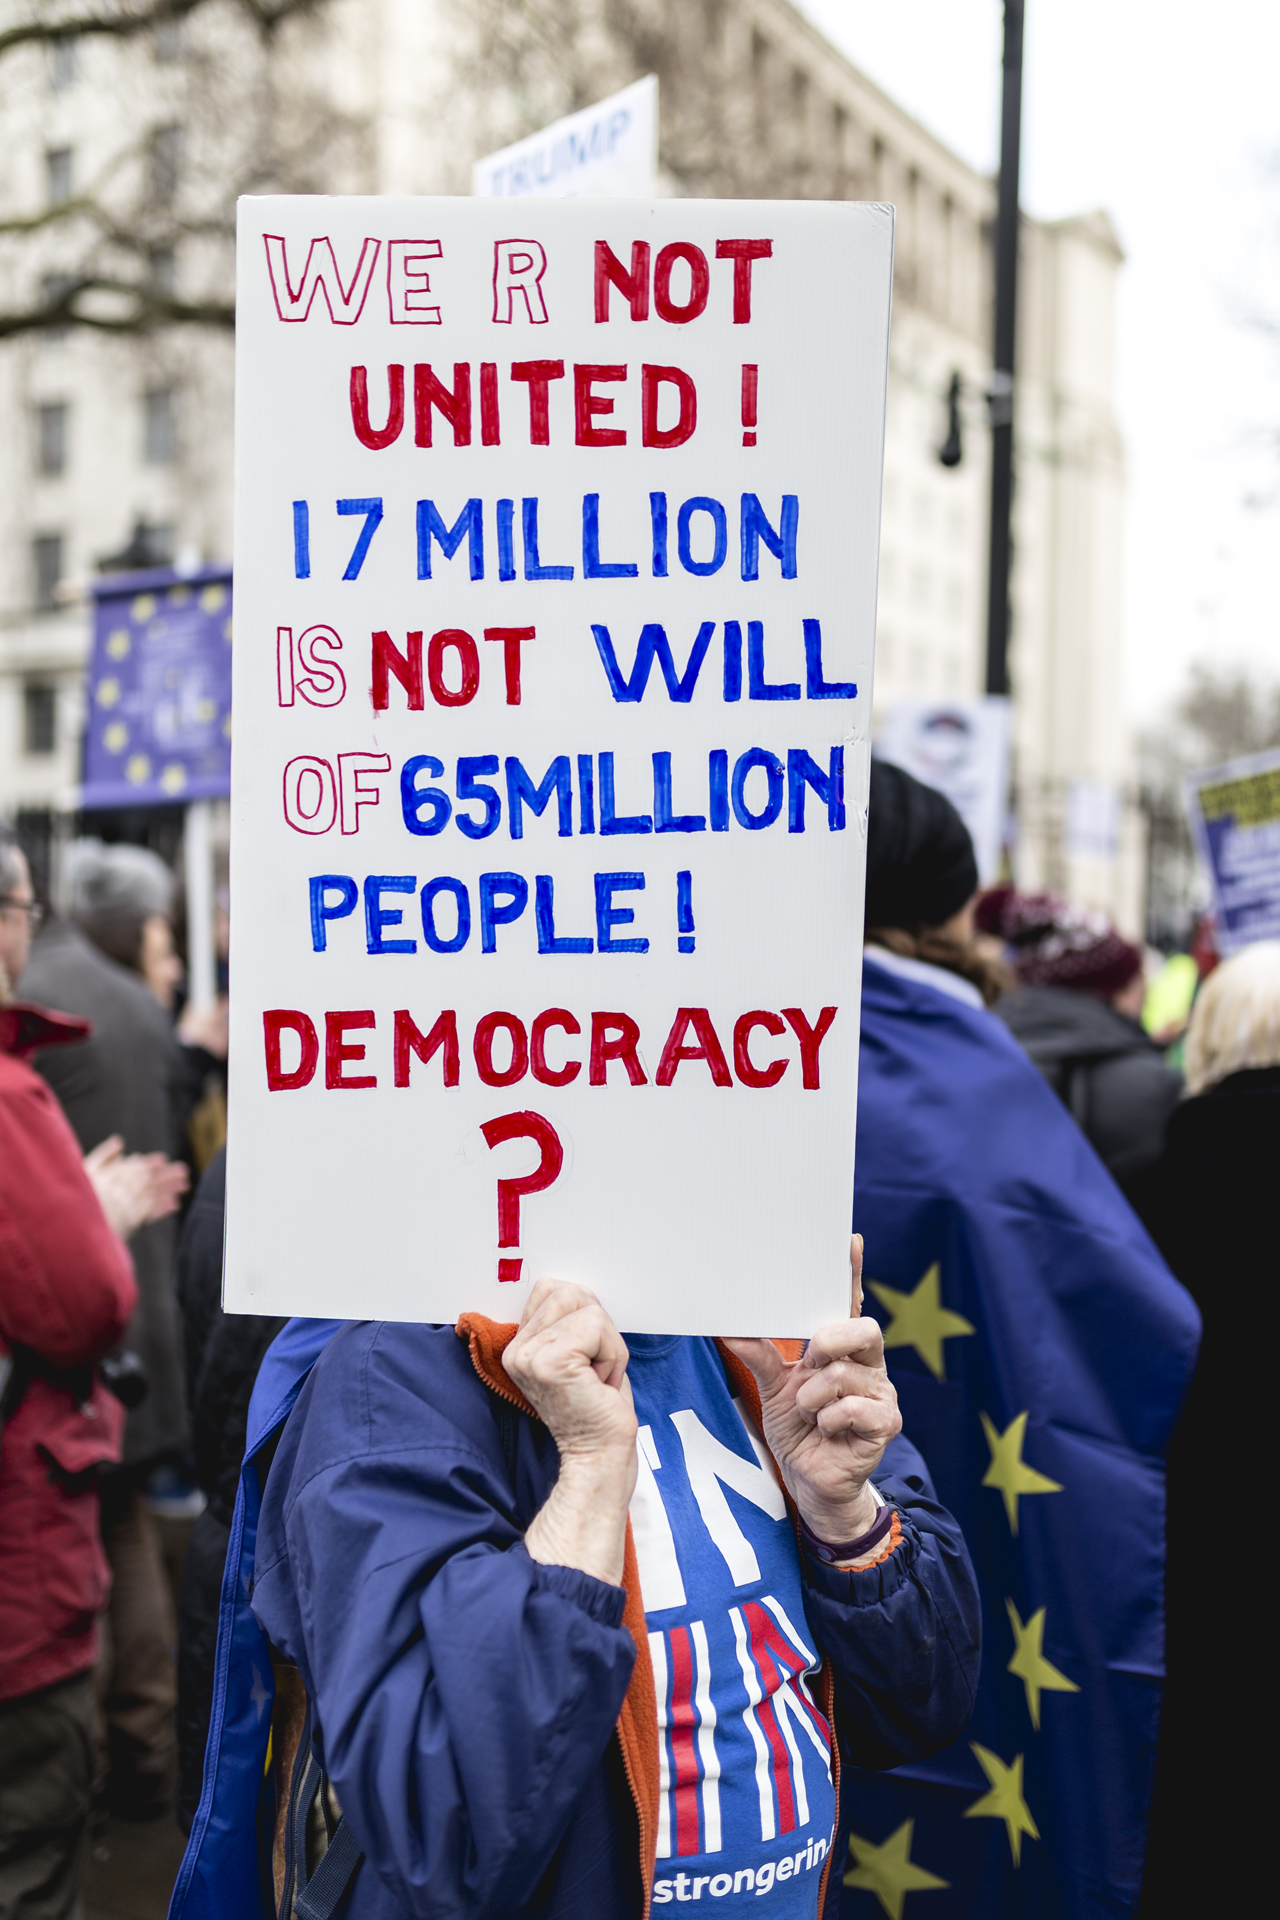 TRUMP
WE R NOT
UNITED !
17 MILLION
IS NOT WILL
OF 65 MILLION
PEOPLE !
DEMOCRACY
?
IN
strongerin.